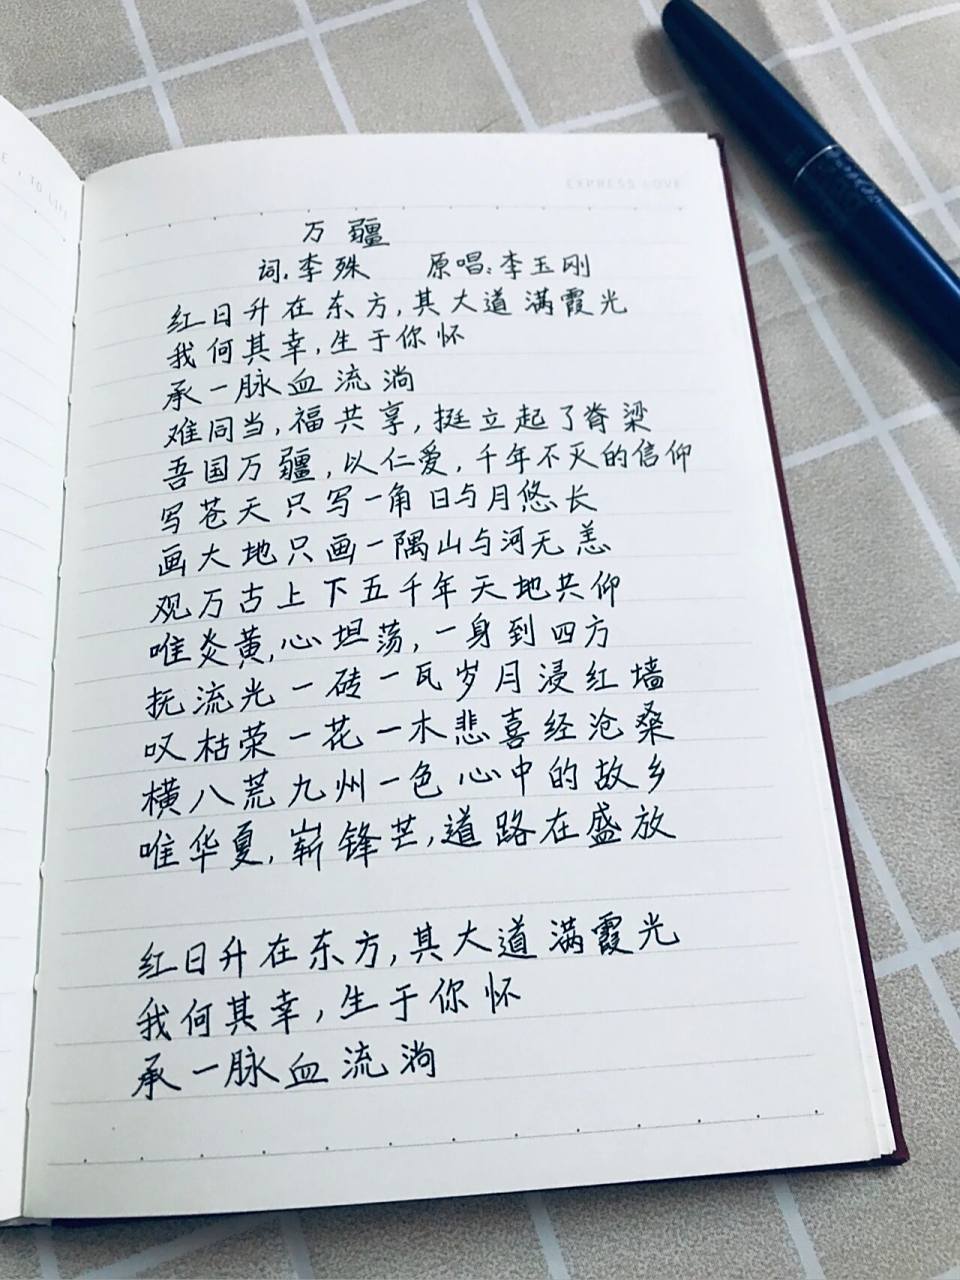 E, TO LIFE
EXPRESS LOVE
万疆
词:李殊 原唱:李玉刚
红日升在东方,其大道满霞光
我何其幸,生于你怀
承一脉血流淌
难同当,福共享,挺立起了脊梁
吾国万疆,以仁爱,千年不灭的信仰
写苍天只写一角日与月悠长
画大地只画一隅山与河无恙
观万古上下五千年天地共仰
唯炎黄,心坦荡,一身到四方
抚流光一砖一瓦岁月浸红墙
叹枯荣一花一木悲喜经沧桑
横八荒九州一色心中的故乡
唯华夏,崭锋芒,道路在盛放
红日升在东方,其大道满霞光
我何其幸,生于你怀
承一脉血流淌